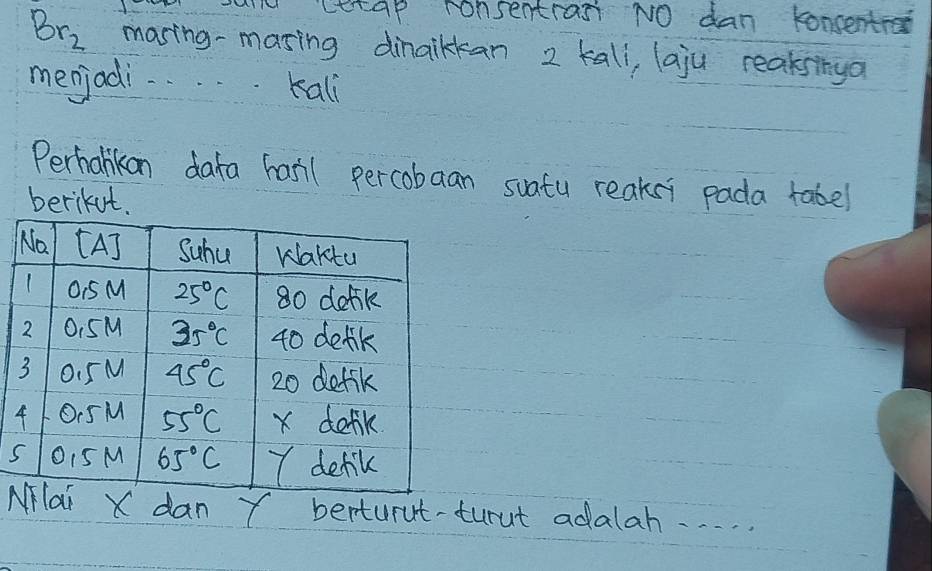 tetap konsentrasi NO dan konsentrasi
Br2 masing-masing dinaikkan 2 kali, laju reaksinya
menjadi ..... kali
Perhatikan data hasil percobaan suatu reaksi pada tabel
berikut.
No. [A] Suhu Waktu
1 0,5 M 25°C 80 detik
2 0,5 M 35°C 40 detik
3 0,5 M 45°C 20 detik
4 0,5 M 55°C X detik
5 0,5 M 65°C Y detik
Nilai X dan Y berturut-turut adalah .....